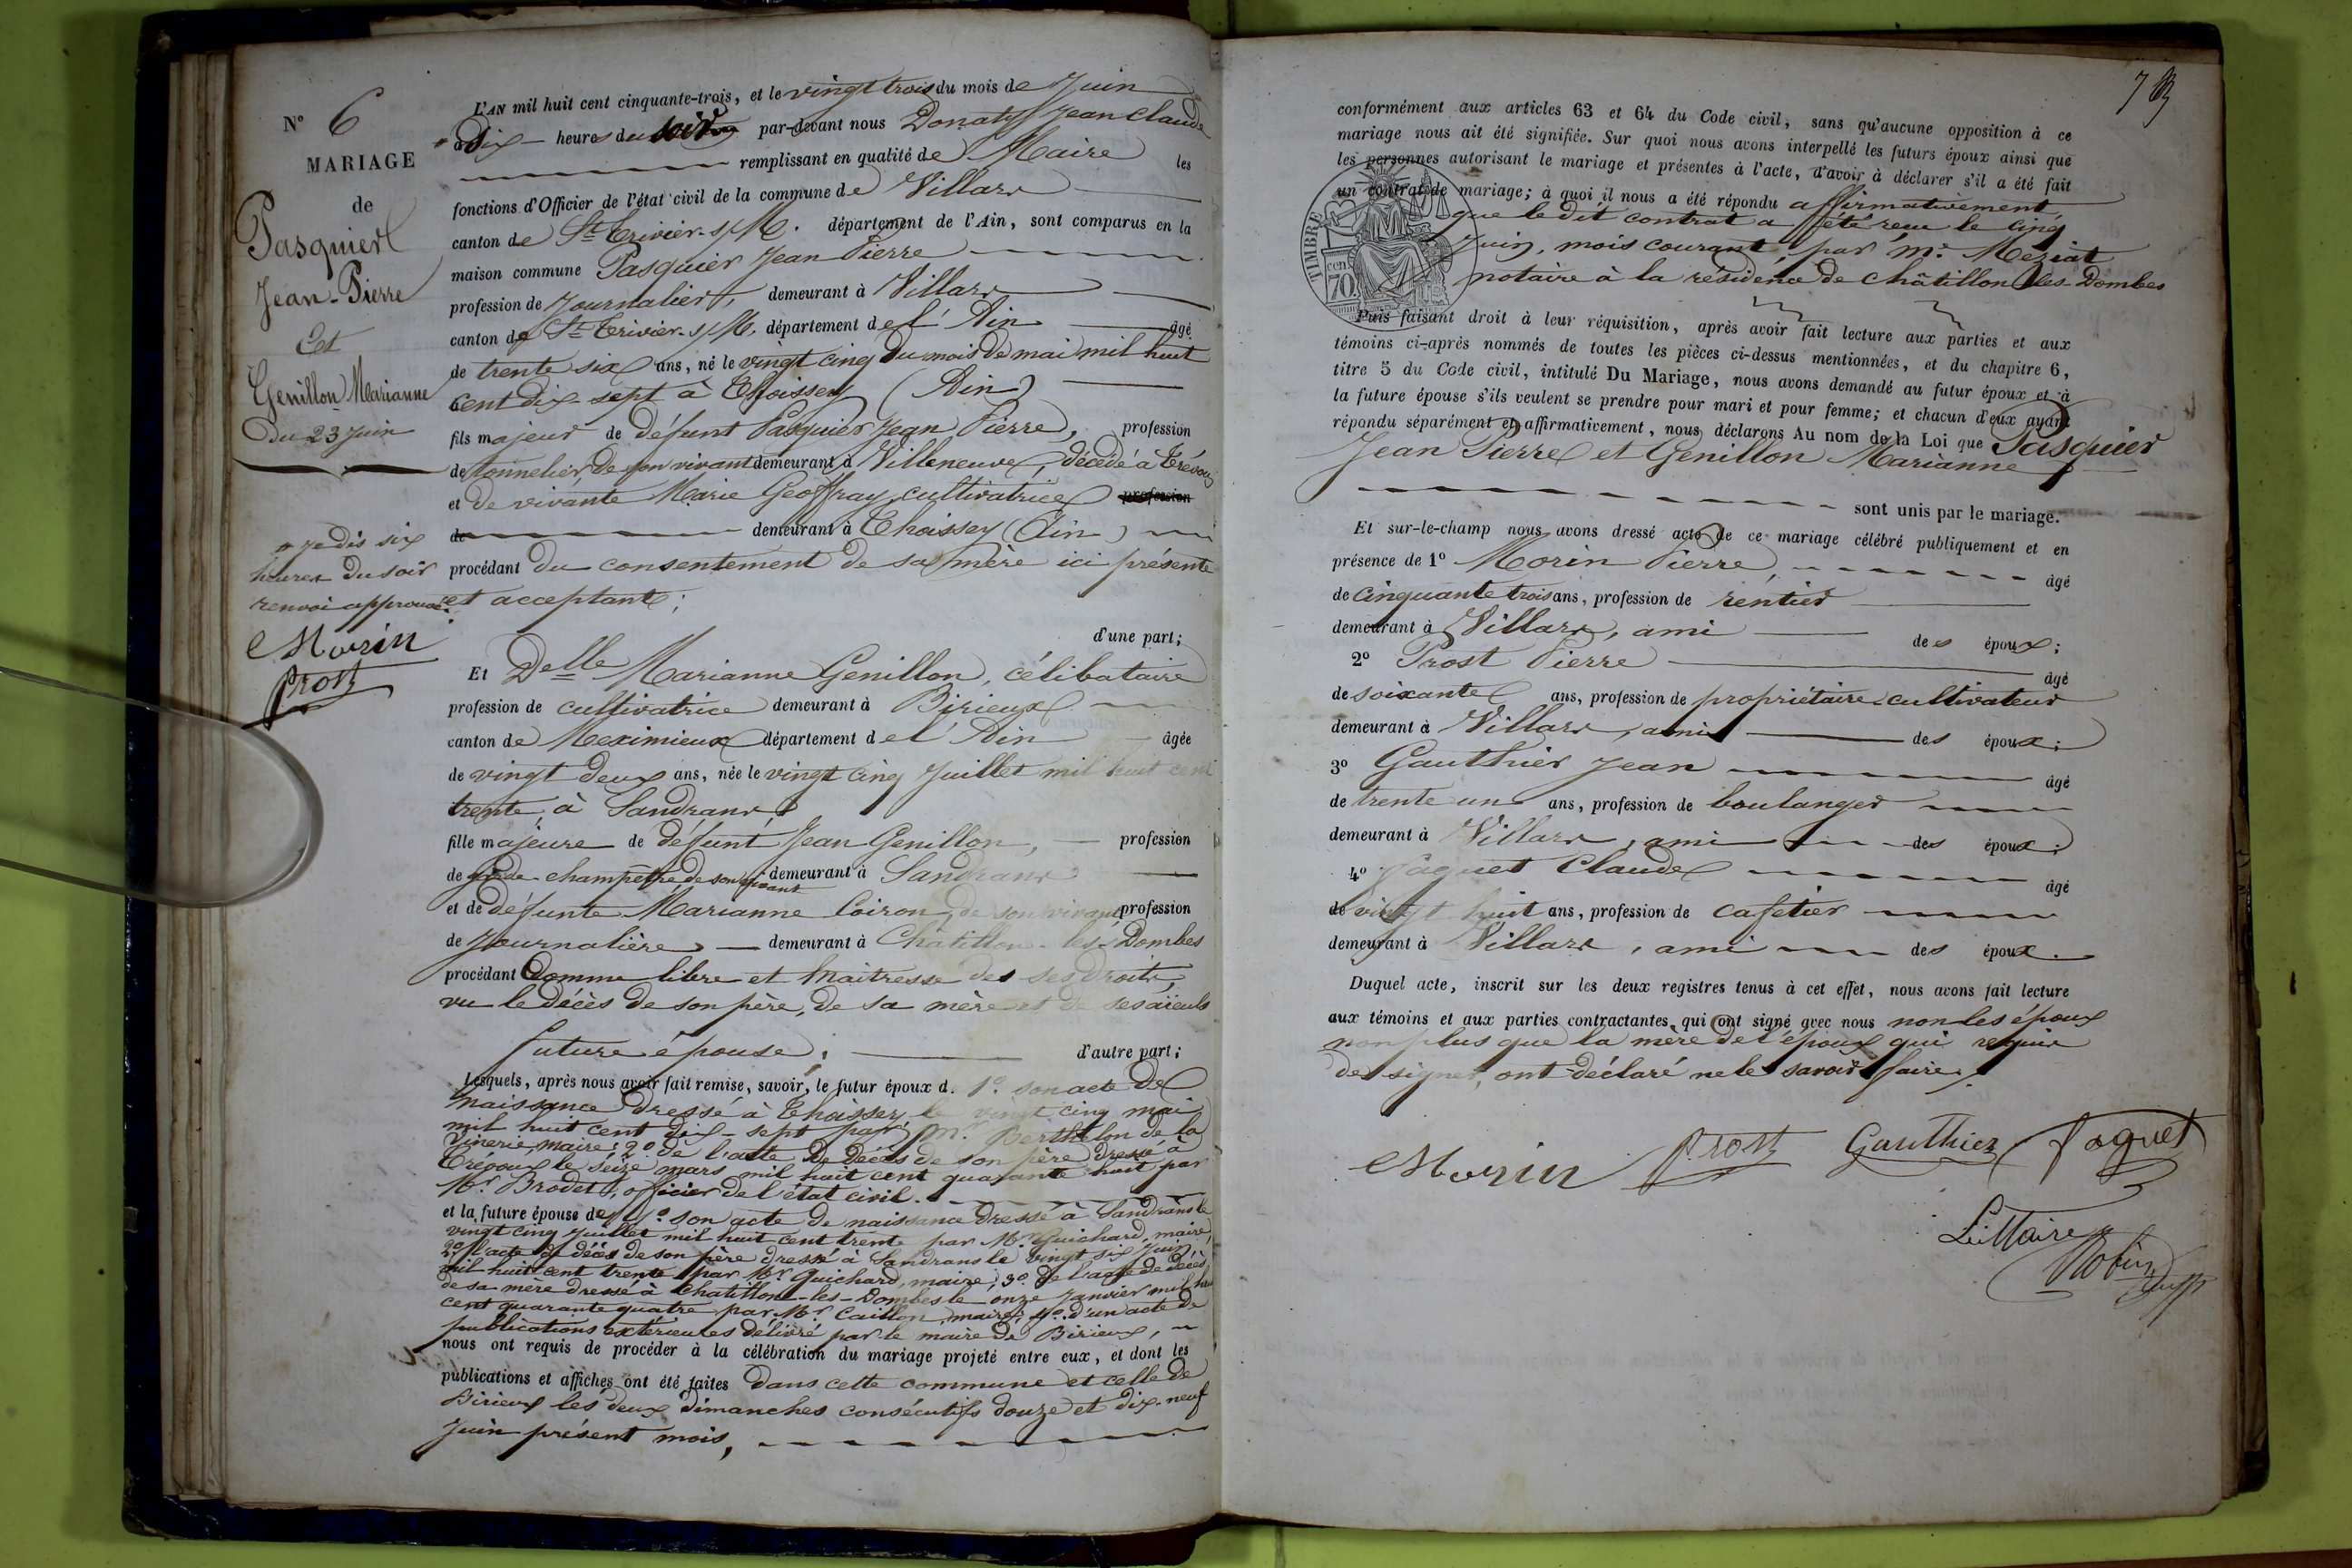 N° 6
MARIAGE
de
Pasquier
Jean-Pierre
Et
Genillon Marianne
Du 23 Juin
je dis six
heures du soir
renvoi approuvé
Morin
Prost
L'AN mil huit cent cinquante-trois, et le vingt trois du mois de Juin
à dix heures du soir par-devant nous Donat Jean Claude
remplissant en qualité de Maire les
fonctions d'Officier de l'état civil de la commune de Villars
canton de St Trivier s/M. département de l'Ain, sont comparus en la
maison commune Pasquier Jean Pierre
profession de Journalier, demeurant à Villars
canton de St Trivier s/M. département de l'Ain âgé
de trente six ans, né le vingt cinq du mois de mai mil huit
cent dix-sept à Thoissey (Ain)
fils majeur de défunt Pasquier Jean Pierre, profession
de tonnelier, de son vivant demeurant à Villeneuve, décédé à Trévoux
et de vivante Marie Geoffray, cultivatrice profession
de demeurant à Thoissey (Ain)
procédant du consentement de sa mère ici présente
et acceptante;
d'une part;
Et Delle Marianne Genillon, célibataire
profession de cultivatrice demeurant à Birieux
canton de Meximieux département de l'Ain âgée
de vingt deux ans, née le vingt cinq Juillet mil huit cent
trente, à Sandrans,
fille majeure de défunt Jean Genillon, profession
de garde-champêtre de son vivant demeurant à Sandrans
et de défunte Marianne Coiron, de son vivant profession
de journalière demeurant à Châtillon-les-Dombes
procédant comme libre et maîtresse des ses droits,
vu le décès de son père, de sa mère et de ses aïeuls
future épouse; d'autre part;
Lesquels, après nous avoir fait remise, savoir, le futur époux d. 1° son acte de
naissance dressé à Thoissey, le vingt cinq mai
mil huit cent dix-sept par Mr Berthelon de la
Vinerie, maire; 2° de l'acte de décès de son père dressé à
Trévoux le seize mars mil huit cent quarante huit par
Mr Brodet, officier de l'état civil.
et la future épouse de 1° son acte de naissance dressé à Sandrans le
vingt cinq Juillet mil huit cent trente par Mr Guichard, maire,
2° l'acte de décès de son père dressé à Sandrans le vingt six Juin
mil huit cent trente par Mr Guichard, maire; 3° de l'acte de décès
de sa mère dressé à Chatillon-les-Dombes le onze Janvier mil huit
cent quarante quatre par Mr Caillon, maire; 4° d'un acte de
publications extérieures délivré par le maire de Birieux,
nous ont requis de procéder à la célébration du mariage projeté entre eux, et dont les
publications et affiches ont été faites dans cette commune et celle de
Birieux les deux dimanches consécutifs douze et dix-neuf
Juin présent mois,
conformément aux articles 63 et 64 du Code civil, sans qu'aucune opposition à ce
mariage nous ait été signifiée. Sur quoi nous avons interpellé les futurs époux ainsi que
les personnes autorisant le mariage et présentes à l'acte, d'avoir à déclarer s'il a été fait
un contrat de mariage; à quoi il nous a été répondu affirmativement
que le dit contrat a été reçu le cinq
Juin, mois courant, par Me Méziat
notaire à la résidence de Châtillon les Dombes
TIMBRE
cen.
70.
Puis faisant droit à leur réquisition, après avoir fait lecture aux parties et aux
témoins ci-après nommés de toutes les pièces ci-dessus mentionnées, et du chapitre 6,
titre 5 du Code civil, intitulé Du Mariage, nous avons demandé au futur époux et à
la future épouse s'ils veulent se prendre pour mari et pour femme; et chacun d'eux ayant
répondu séparément et affirmativement, nous déclarons Au nom de la Loi que Pasquier
Jean Pierre et Genillon Marianne
sont unis par le mariage.
Et sur-le-champ nous avons dressé acte de ce mariage célébré publiquement et en
présence de 1° Morin Pierre, âgé
de cinquante trois ans, profession de rentier
demeurant à Villars, ami des époux;
2° Prost Pierre âgé
de soixante ans, profession de propriétaire-cultivateur
demeurant à Villars, ami des époux;
3° Gauthier Jean âgé
de trente un ans, profession de boulanger
demeurant à Villars, ami des époux;
4° Paquet Claude âgé
de vingt huit ans, profession de cafetier
demeurant à Villars, ami des époux.
Duquel acte, inscrit sur les deux registres tenus à cet effet, nous avons fait lecture
aux témoins et aux parties contractantes, qui ont signé avec nous non les époux
non plus que la mère de l'époux qui requis
de signer, ont déclaré ne le savoir faire.
Morin Prost Gauthier Paquet
Le Maire